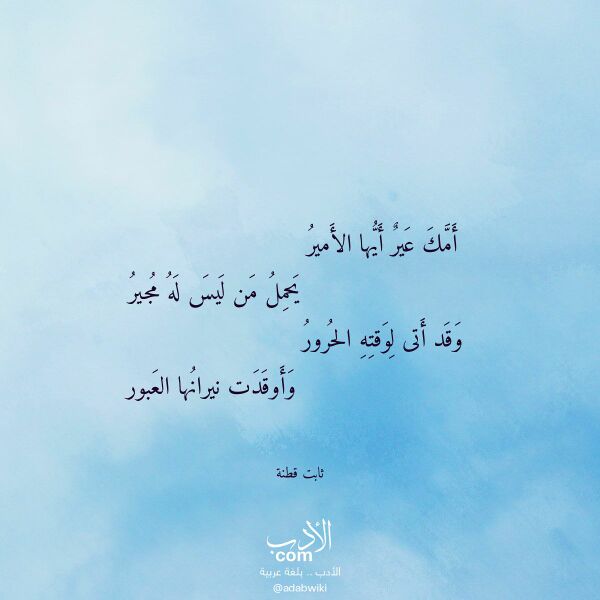 أَمَّكَ عَيرٌ أَيُّها الأَميرُ
يَحمِلُ مَن لَيسَ لَهُ مُجيرُ
وَقَد أَتى لِوَقتِهِ الحُرورُ
وَأَوقَدَت نيرانُها العَبور
ثابت قطنة
الأدب
com
الأدب .. بلغة عربية
@adabwiki